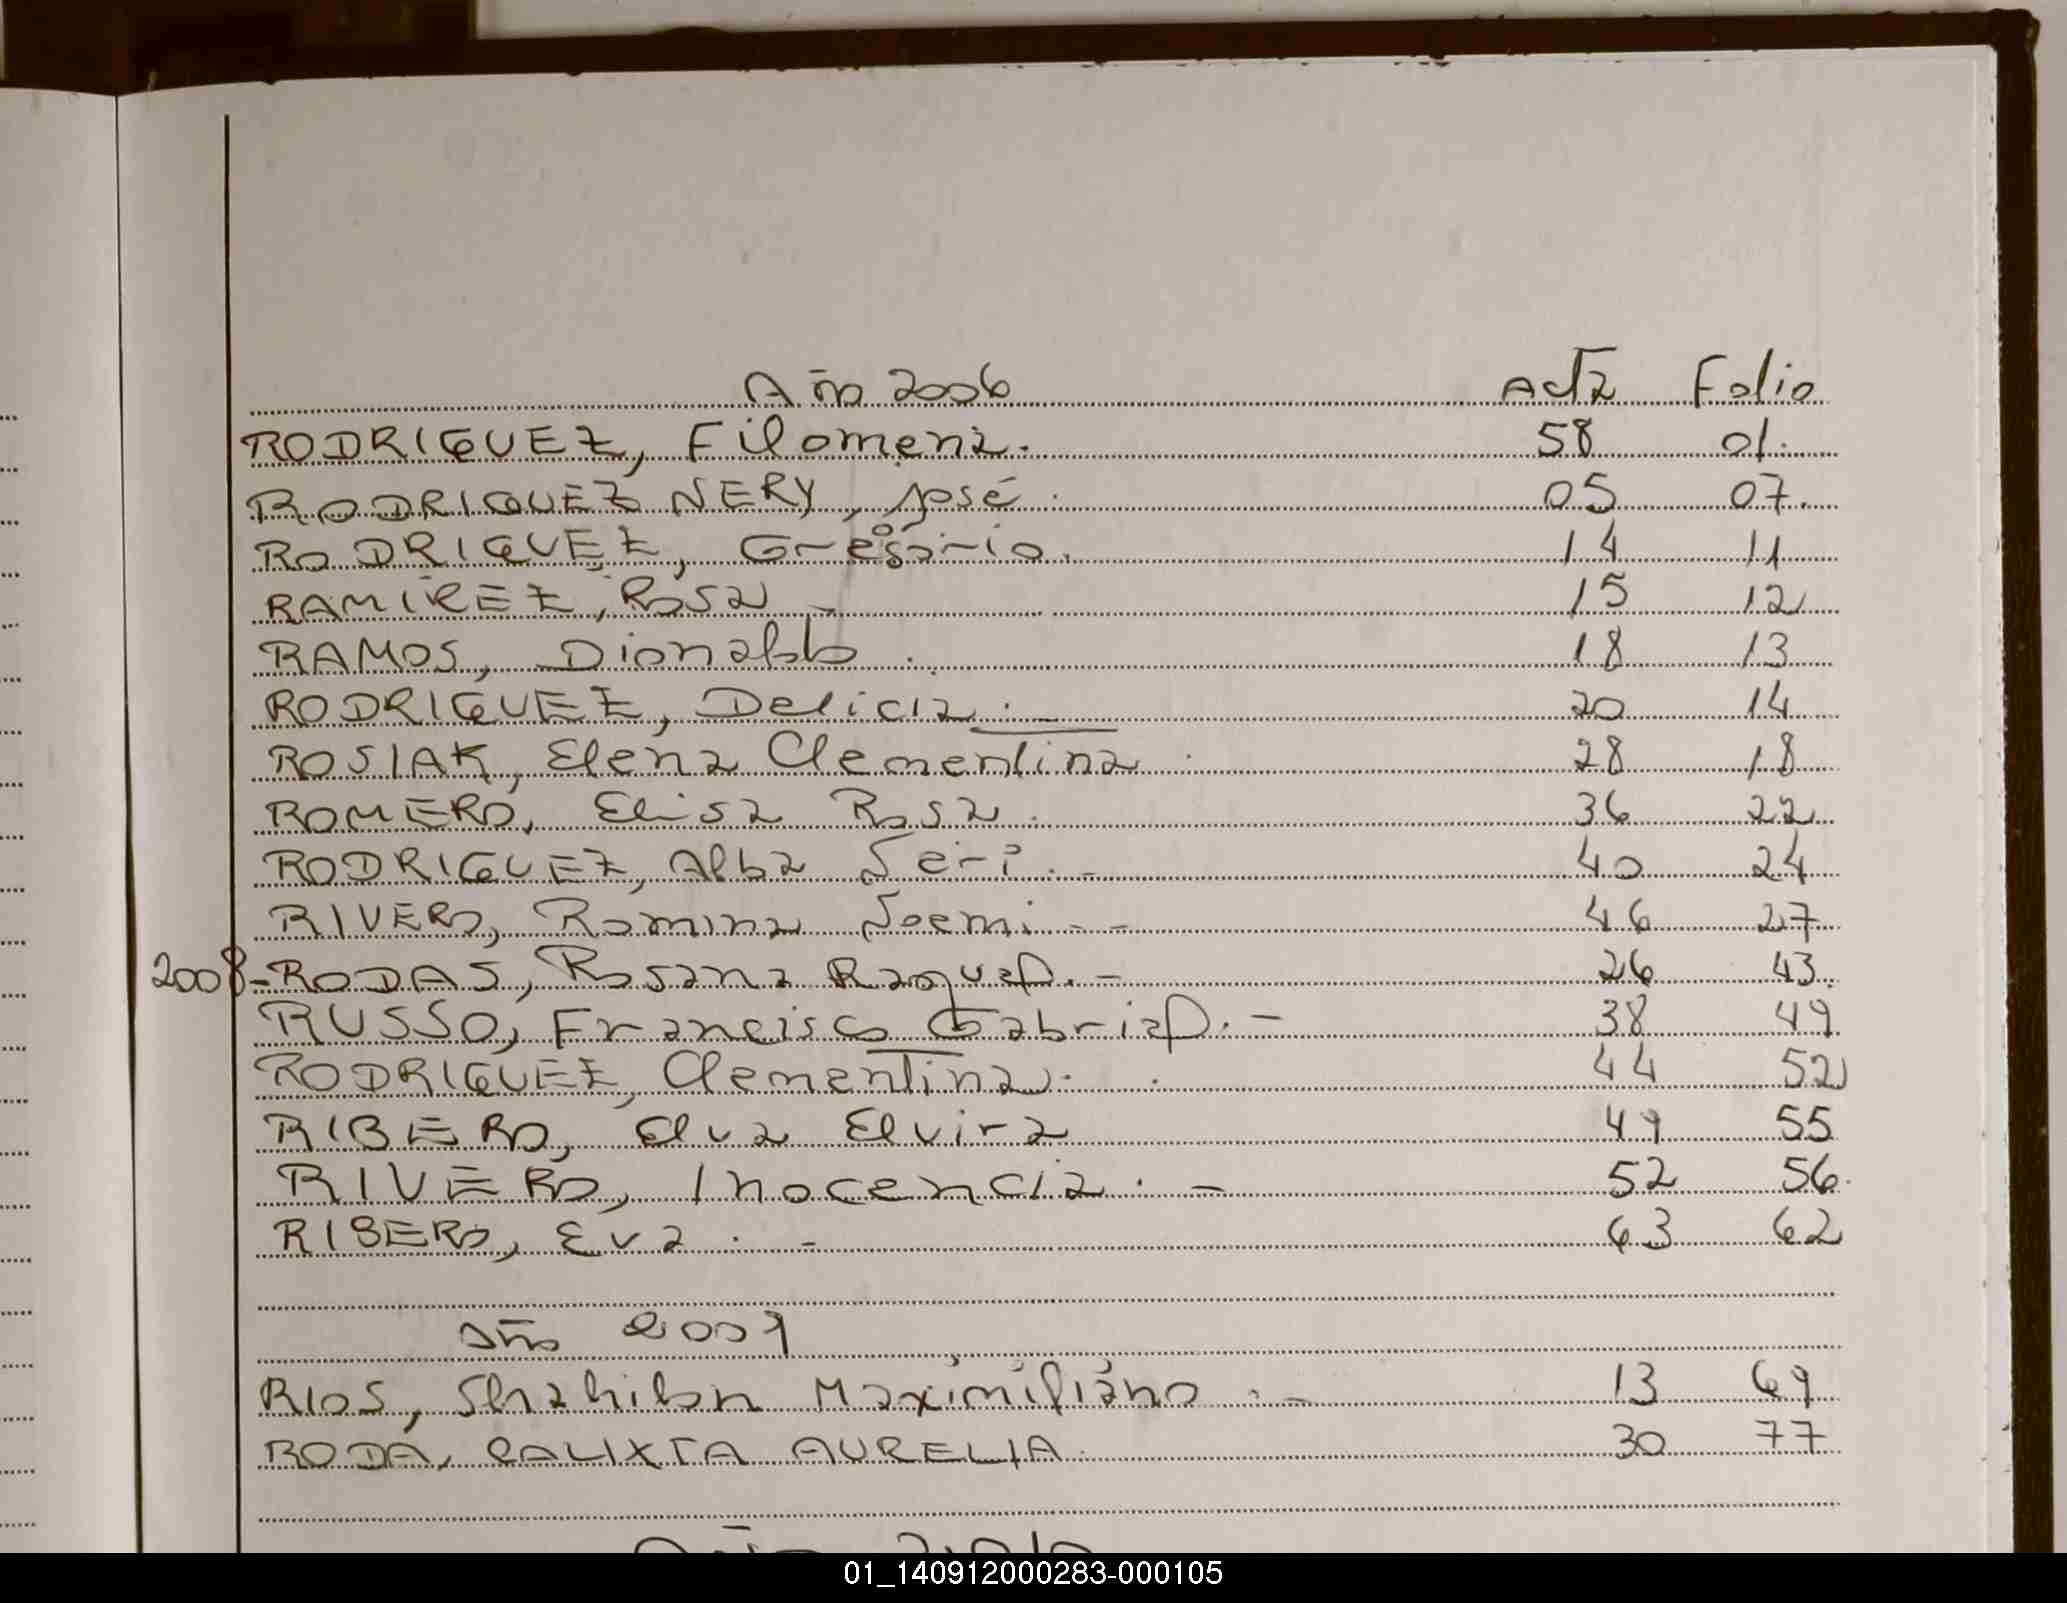 Año 2006 Acta Folio
RODRIGUEZ, Filomena. 58 01.
RODRIGUEZ NERY, José. 05 07.
RODRIGUEZ, Gregorio. 14 11
RAMIREZ, Rosa - 15 12
RAMOS, Dionaldo. 18 13
RODRIGUEZ, Delicia. - 20 14
ROSIAK, Elena Clementina. 28 18
ROMERO, Elisa Rosa. 36 22
RODRIGUEZ, Alba Neri. - 40 24
RIVERO, Romina Noemi. - 46 27
2008-RODAS, Rosana Raquel. - 26 43.
RUSSO, Francisco Gabriel. - 38 49
RODRIGUEZ, Clementina. 44 52
RIBERO, Elva Elvira 49 55
RIVERO, Inocencia. - 52 56.
RIBERO, Eva. - 63 62
año 2009
RIOS, Maximiliano. - 13 69
RODA, CALIXTA AURELIA. 30 77
01_140912000283-000105